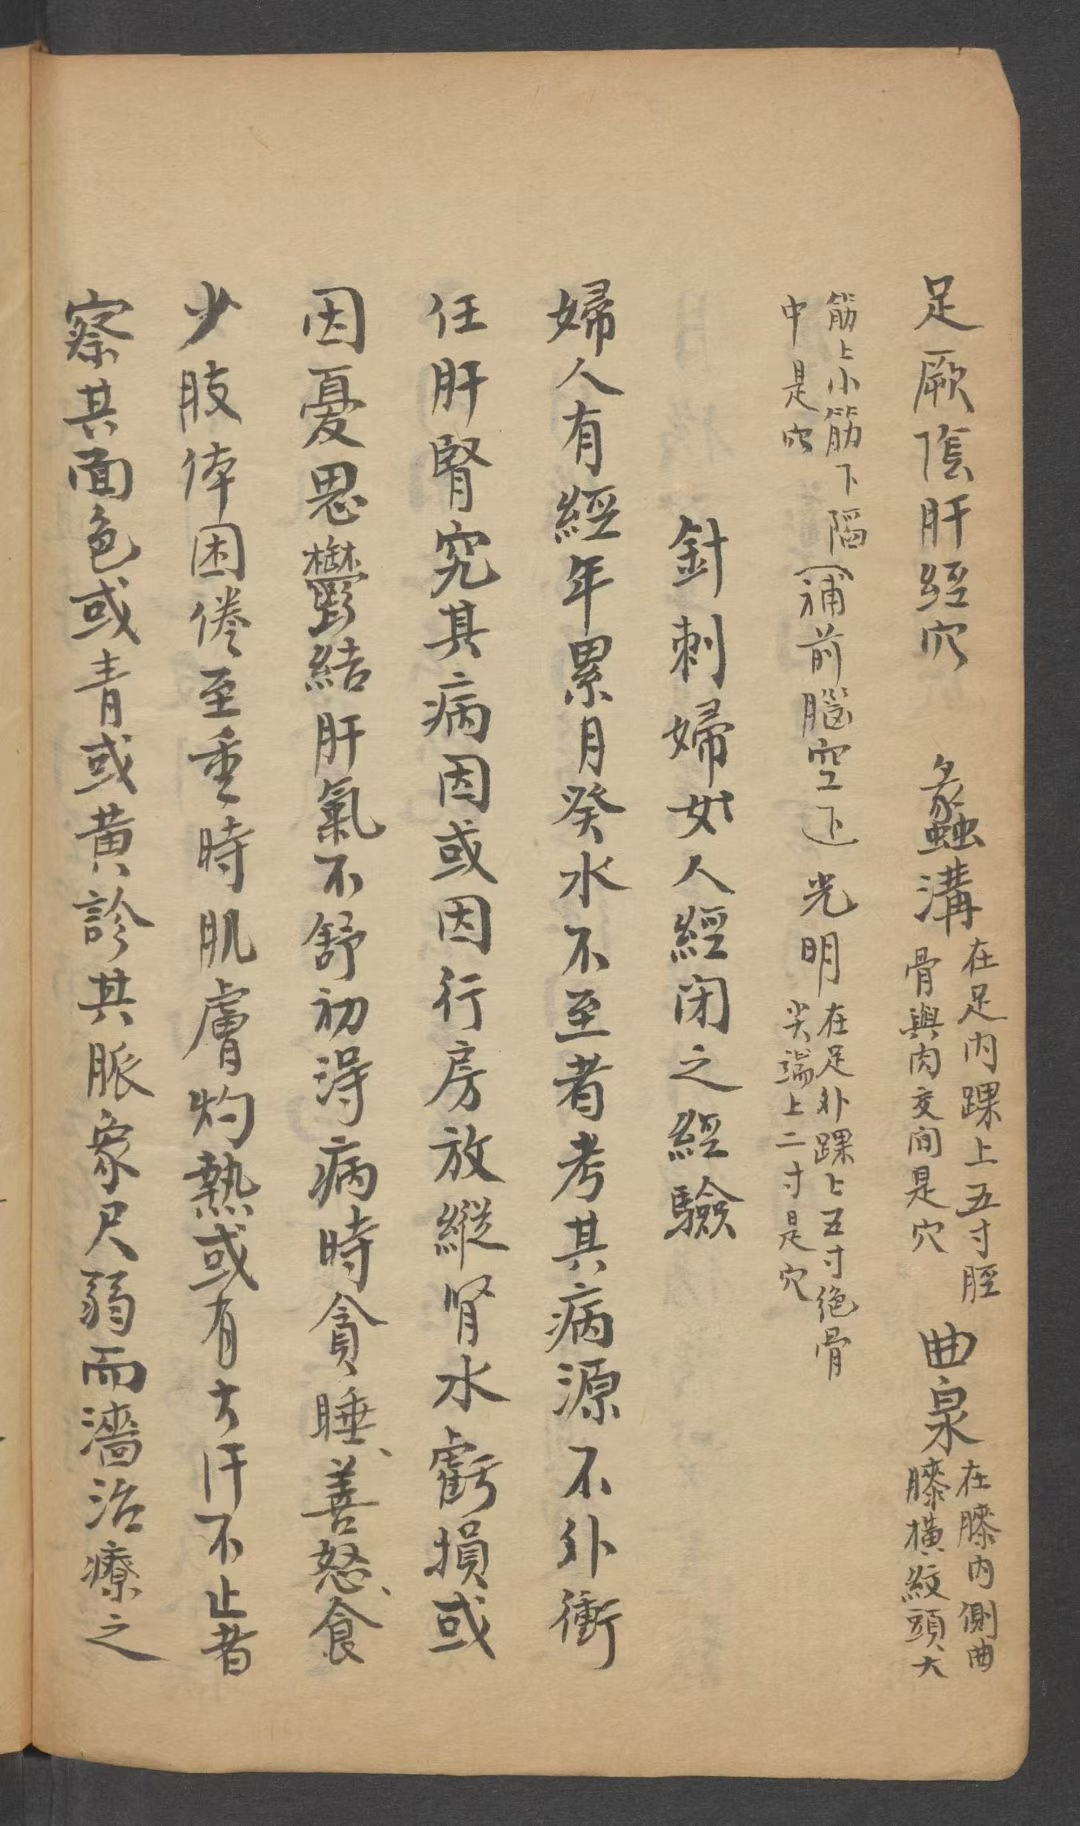 足厥陰肝經穴 蠡溝 在足內踝上五寸脛骨與肉交间是穴 曲泉 在膝內側曲膝横紋頭大
筋上小筋下陷中是穴 (補前腦空下) 光明 在足外踝上五寸绝骨尖端上二寸是穴
針刺婦女人經闭之經驗
婦人有經年累月癸水不至者考其病源不外衝
任肝腎究其病因或因行房放縱肾水虧損或
因憂思鬱結肝氣不舒初得病時貪睡、善怒、食
少肢体困倦至重時肌膚灼熱或有方汗不止者
察其面色或青或黄診其脈象尺弱而濇治療之